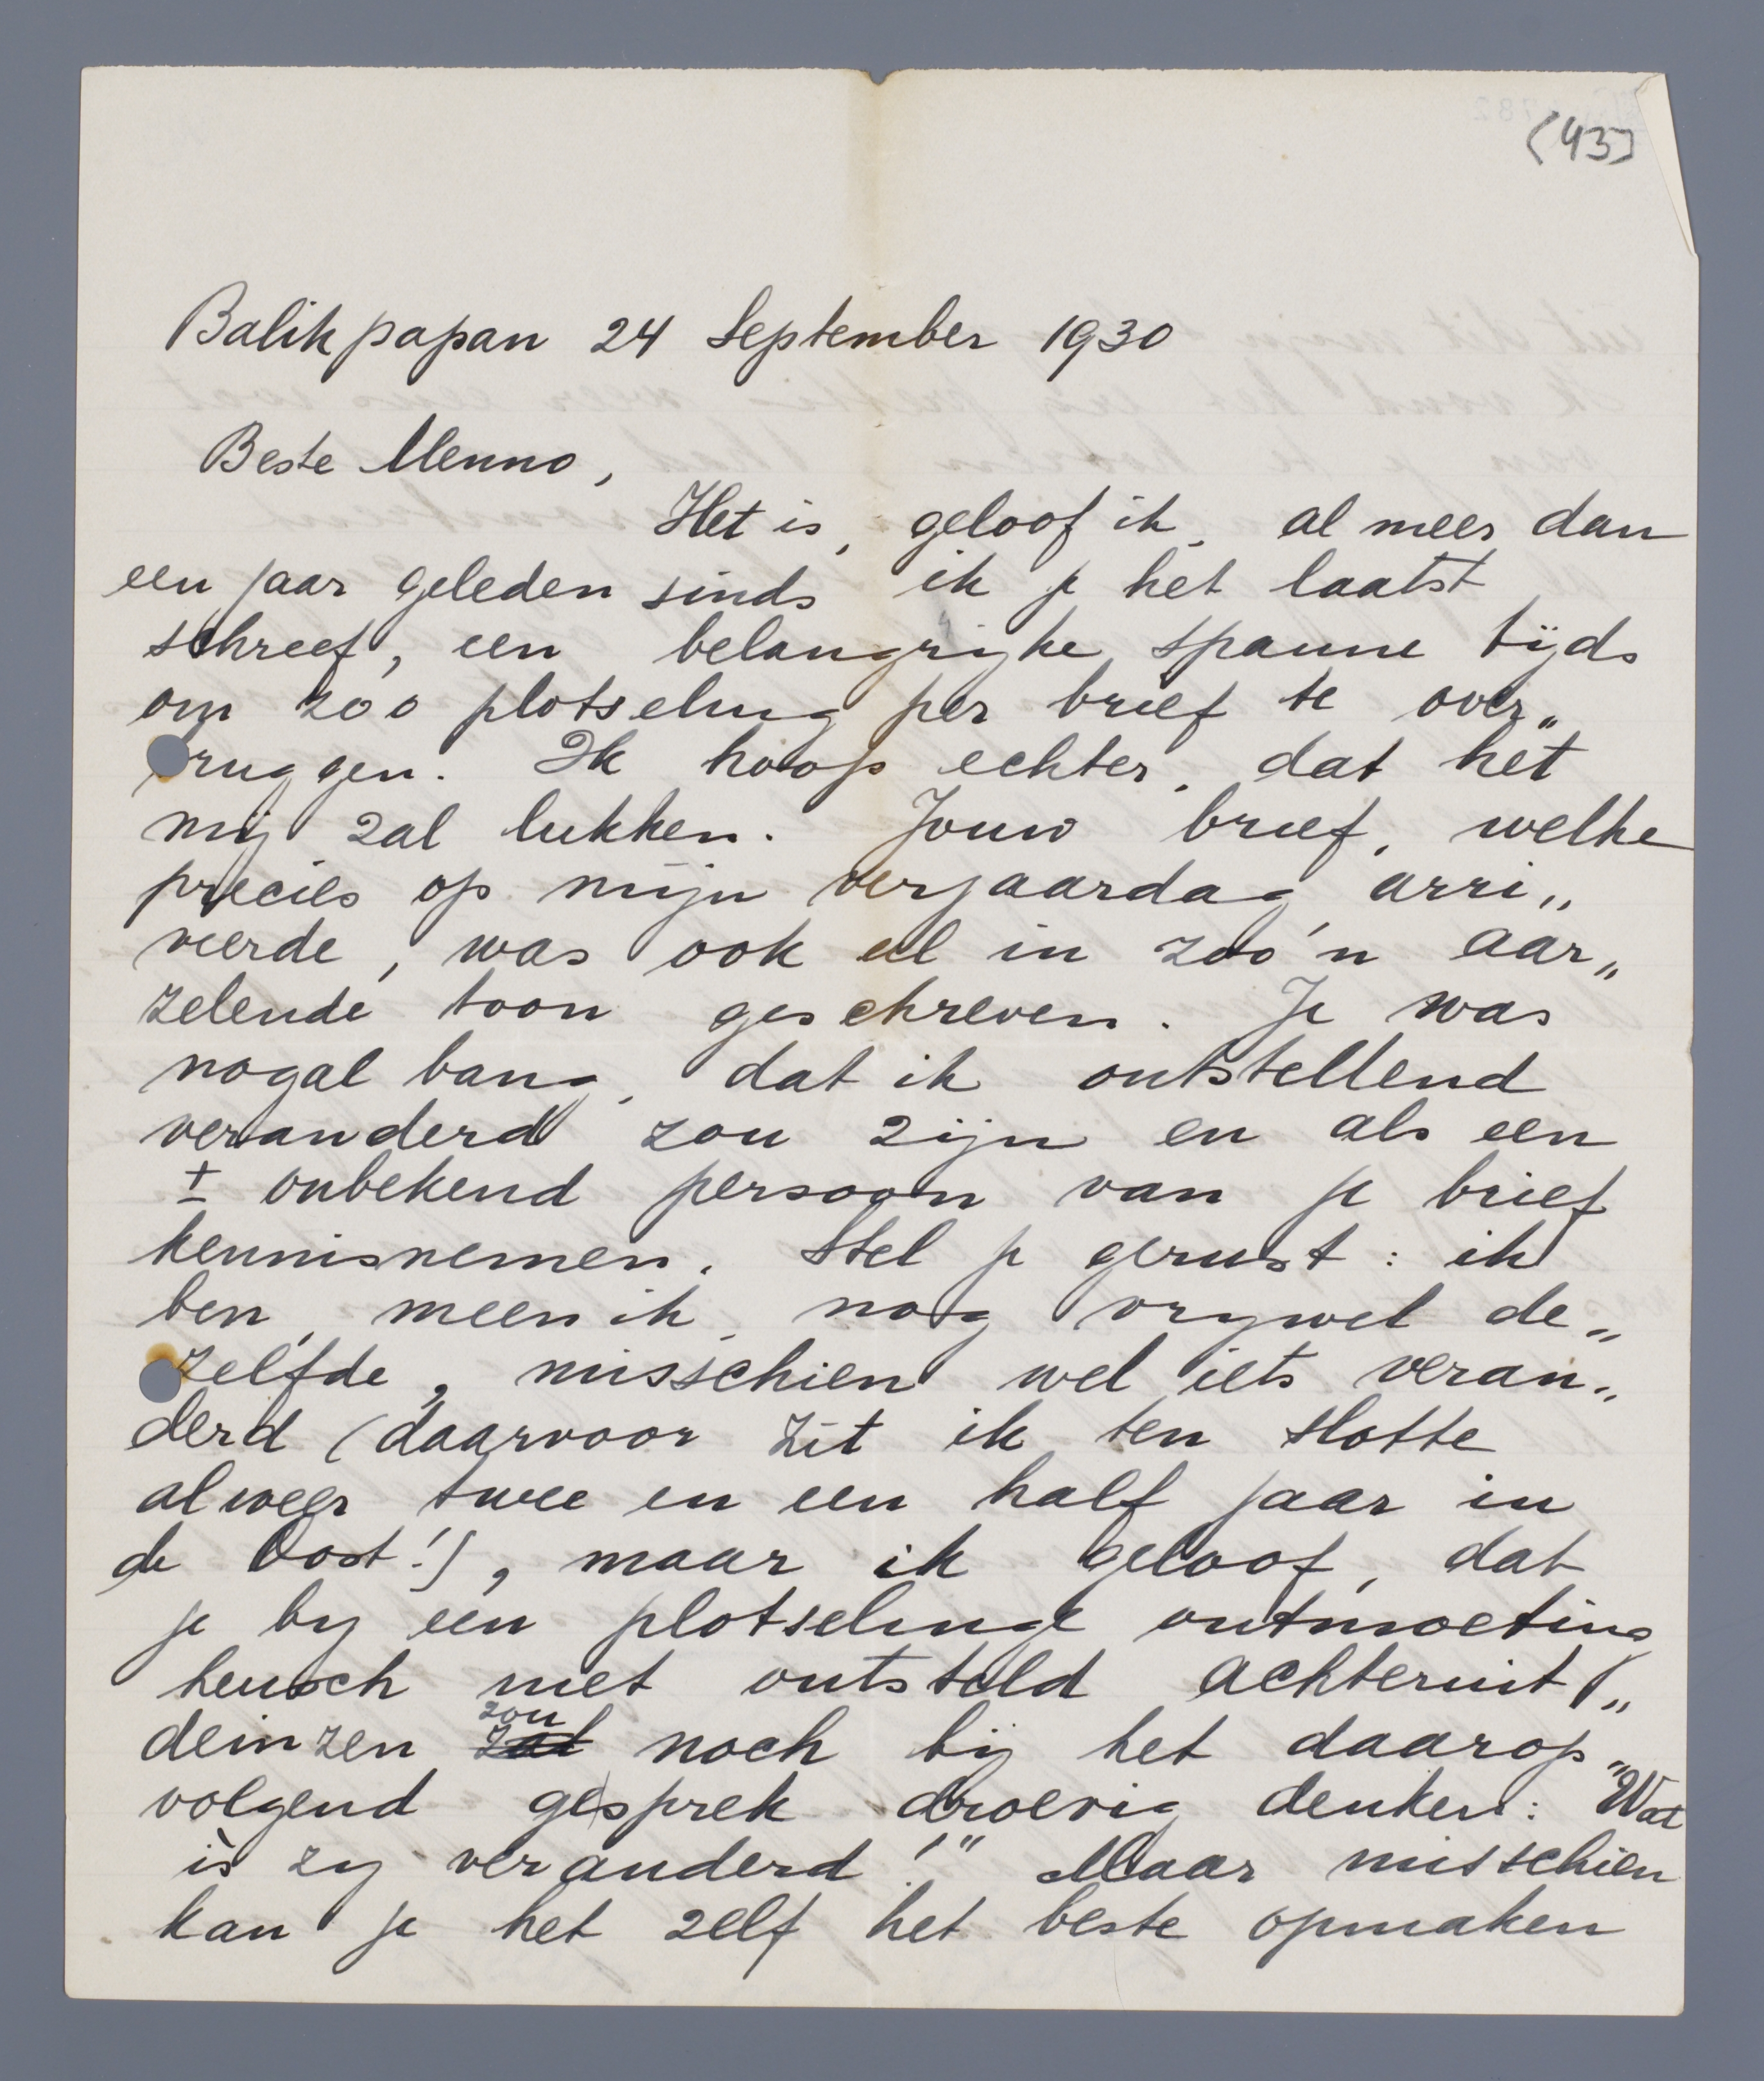 (43)
Balikpapan 24 September 1930
Beste Menno,
Het is, geloof ik, al meer dan
een jaar geleden sinds ik je het laatst
schreef, een belangrijke spanne tijds
om zoo plotseling per brief te over„
bruggen. Ik hoop echter, dat het
mij zal lukken. Jouw brief, welke
precies op mijn verjaardag arri„
veerde, was ook al in zoo'n aar„
zelende toon geschreven. Je was
nogal bang, dat ik ontstellend
veranderd zou zijn en als een
± onbekend persoon van je brief
kennisnemen. Stel je gerust: ik
ben, meen ik, nog vrywel de„
zelfde, misschien wel iets veran„
derd (daarvoor zit ik ten slotte
alweer twee en een half jaar in
de Oost!), maar ik geloof, dat
je by een plotselinge ontmoeting
heusch niet ontsteld achteruit„
deinzen zal zou noch bij het daarop„
volgend gesprek droevig denken: "Wat
ìs zy veranderd!" Maar misschien
kan je het zelf het beste opmaken